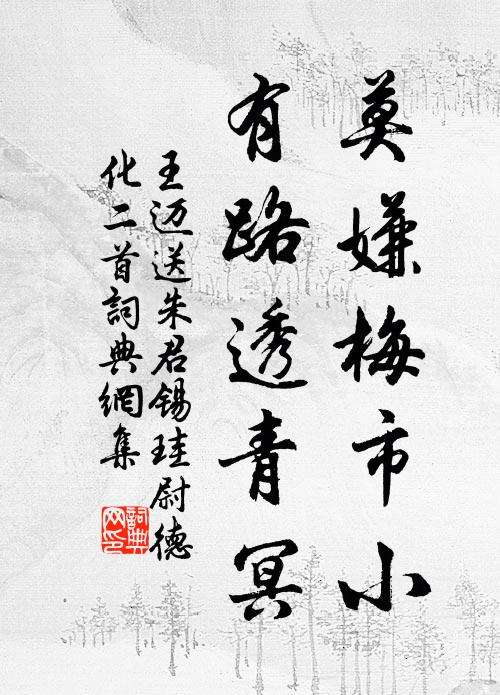 莫嫌梅市小
有路透青冥
王迈送朱君锡珪尉德
化二首詞典網集
詞典
网印